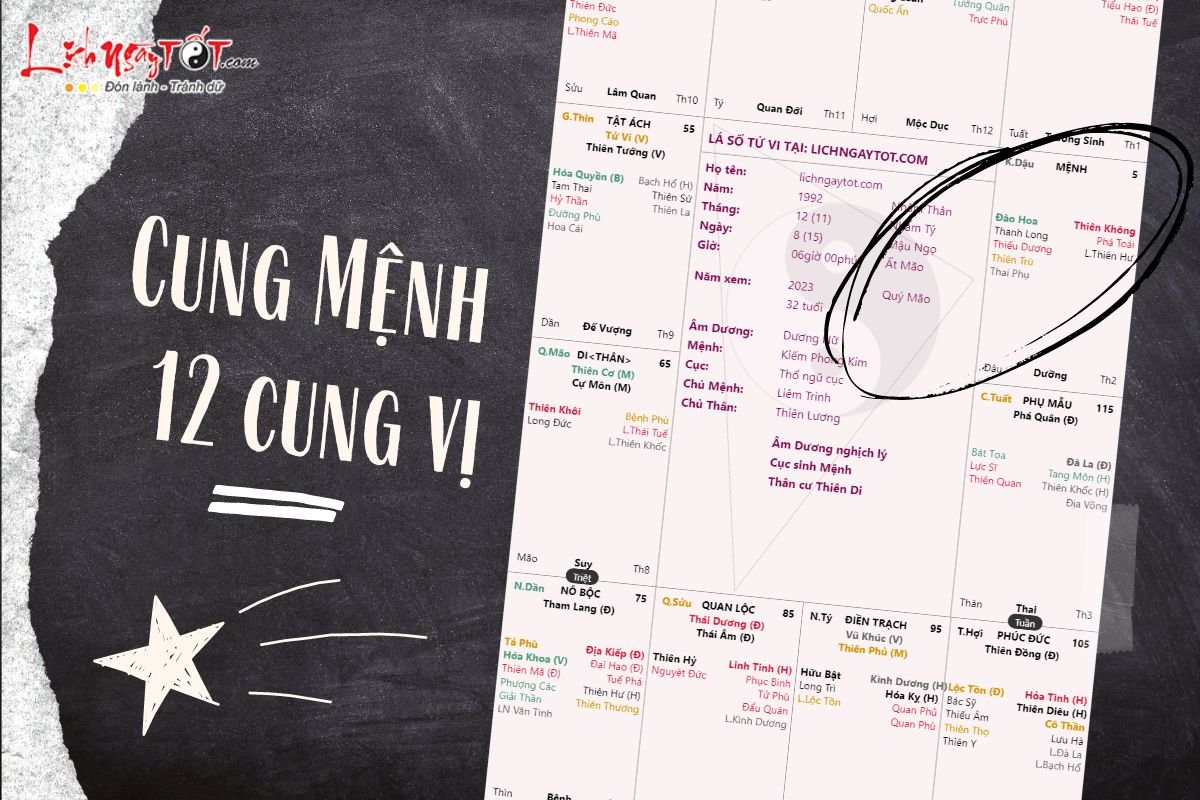 LịchNgàyTỐT.com
Đón lành - Tránh dữ
CUNG MỆNH
12 CUNG VỊ
Thiên Đức
Phong Cáo
L.Thiên Mã
Sửu Lâm Quan Th10
Tý Quan Đới Th11
Quốc Ấn
Tướng Quân
Trực Phù
Hợi Mộc Dục Th12
Tiểu Hao (Đ)
Thái Tuế
Tuất Tràng Sinh Th1
G.Thìn TẬT ÁCH 55
Tử Vi (V)
Thiên Tướng (V)
Hóa Quyền (B) Bạch Hổ (H)
Tam Thai Thiên Sứ
Hỷ Thần Thiên La
Đường Phù
Hoa Cái
Dần Đế Vượng Th9
LÁ SỐ TỬ VI TẠI: LICHNGAYTOT.COM
Họ tên: lichngaytot.com
Năm: 1992 Nhâm Thân
Tháng: 12 (11) Nhâm Tý
Ngày: 8 (15) Mậu Ngọ
Giờ: 06giờ 00phú Ất Mão
Năm xem: 2023 Quý Mão
32 tuổi
Âm Dương: Dương Nữ
Mệnh: Kiếm Phong Kim
Cục: Thổ ngũ cục
Chủ Mệnh: Liêm Trinh
Chủ Thân: Thiên Lương
Âm Dương nghịch lý
Cục sinh Mệnh
Thân cư Thiên Di
K.Dậu MỆNH 5
Đào Hoa Thiên Không
Thanh Long Phá Toái
Thiếu Dương L.Thiên Hư
Thiên Trù
Thai Phụ
Dậu Dưỡng Th2
Q.Mão DI<THÂN> 65
Thiên Cơ (M)
Cự Môn (M)
Thiên Khôi Bệnh Phù
Long Đức L.Thái Tuế
L.Thiên Khốc
Mão Suy Th8
Triệt
C.Tuất PHỤ MẪU 115
Phá Quân (Đ)
Bát Tọa Đà La (Đ)
Lực Sĩ Tang Môn (H)
Thiên Quan Thiên Khốc (H)
Địa Võng
Thân Thai Th3
Tuần
N.Dần NÔ BỘC 75
Tham Lang (Đ)
Tả Phù Địa Kiếp (Đ)
Hóa Khoa (V) Đại Hao (Đ)
Thiên Mã (Đ) Tuế Phá
Phượng Các Thiên Hư (H)
Giải Thần Thiên Thương
LN Văn Tinh
Thìn Bệnh
Q.Sửu QUAN LỘC 85
Thái Dương (Đ)
Thái Âm (Đ)
Thiên Hỷ Linh Tinh (H)
Nguyệt Đức Phục Binh
Tử Phù
Đẩu Quân
L.Kình Dương
N.Tý ĐIỀN TRẠCH 95
Vũ Khúc (V)
Thiên Phủ (M)
Hữu Bật Kình Dương (H)
Long Trì Hóa Kỵ (H)
L.Lộc Tồn Quan Phủ
Quan Phù
T.Hợi PHÚC ĐỨC 105
Thiên Đồng (Đ)
Lộc Tồn (Đ) Hỏa Tinh (H)
Bác Sỹ Thiên Diêu (H)
Thiếu Âm Cô Thần
Thiên Thọ Lưu Hà
Thiên Y L.Đà La
L.Bạch Hổ